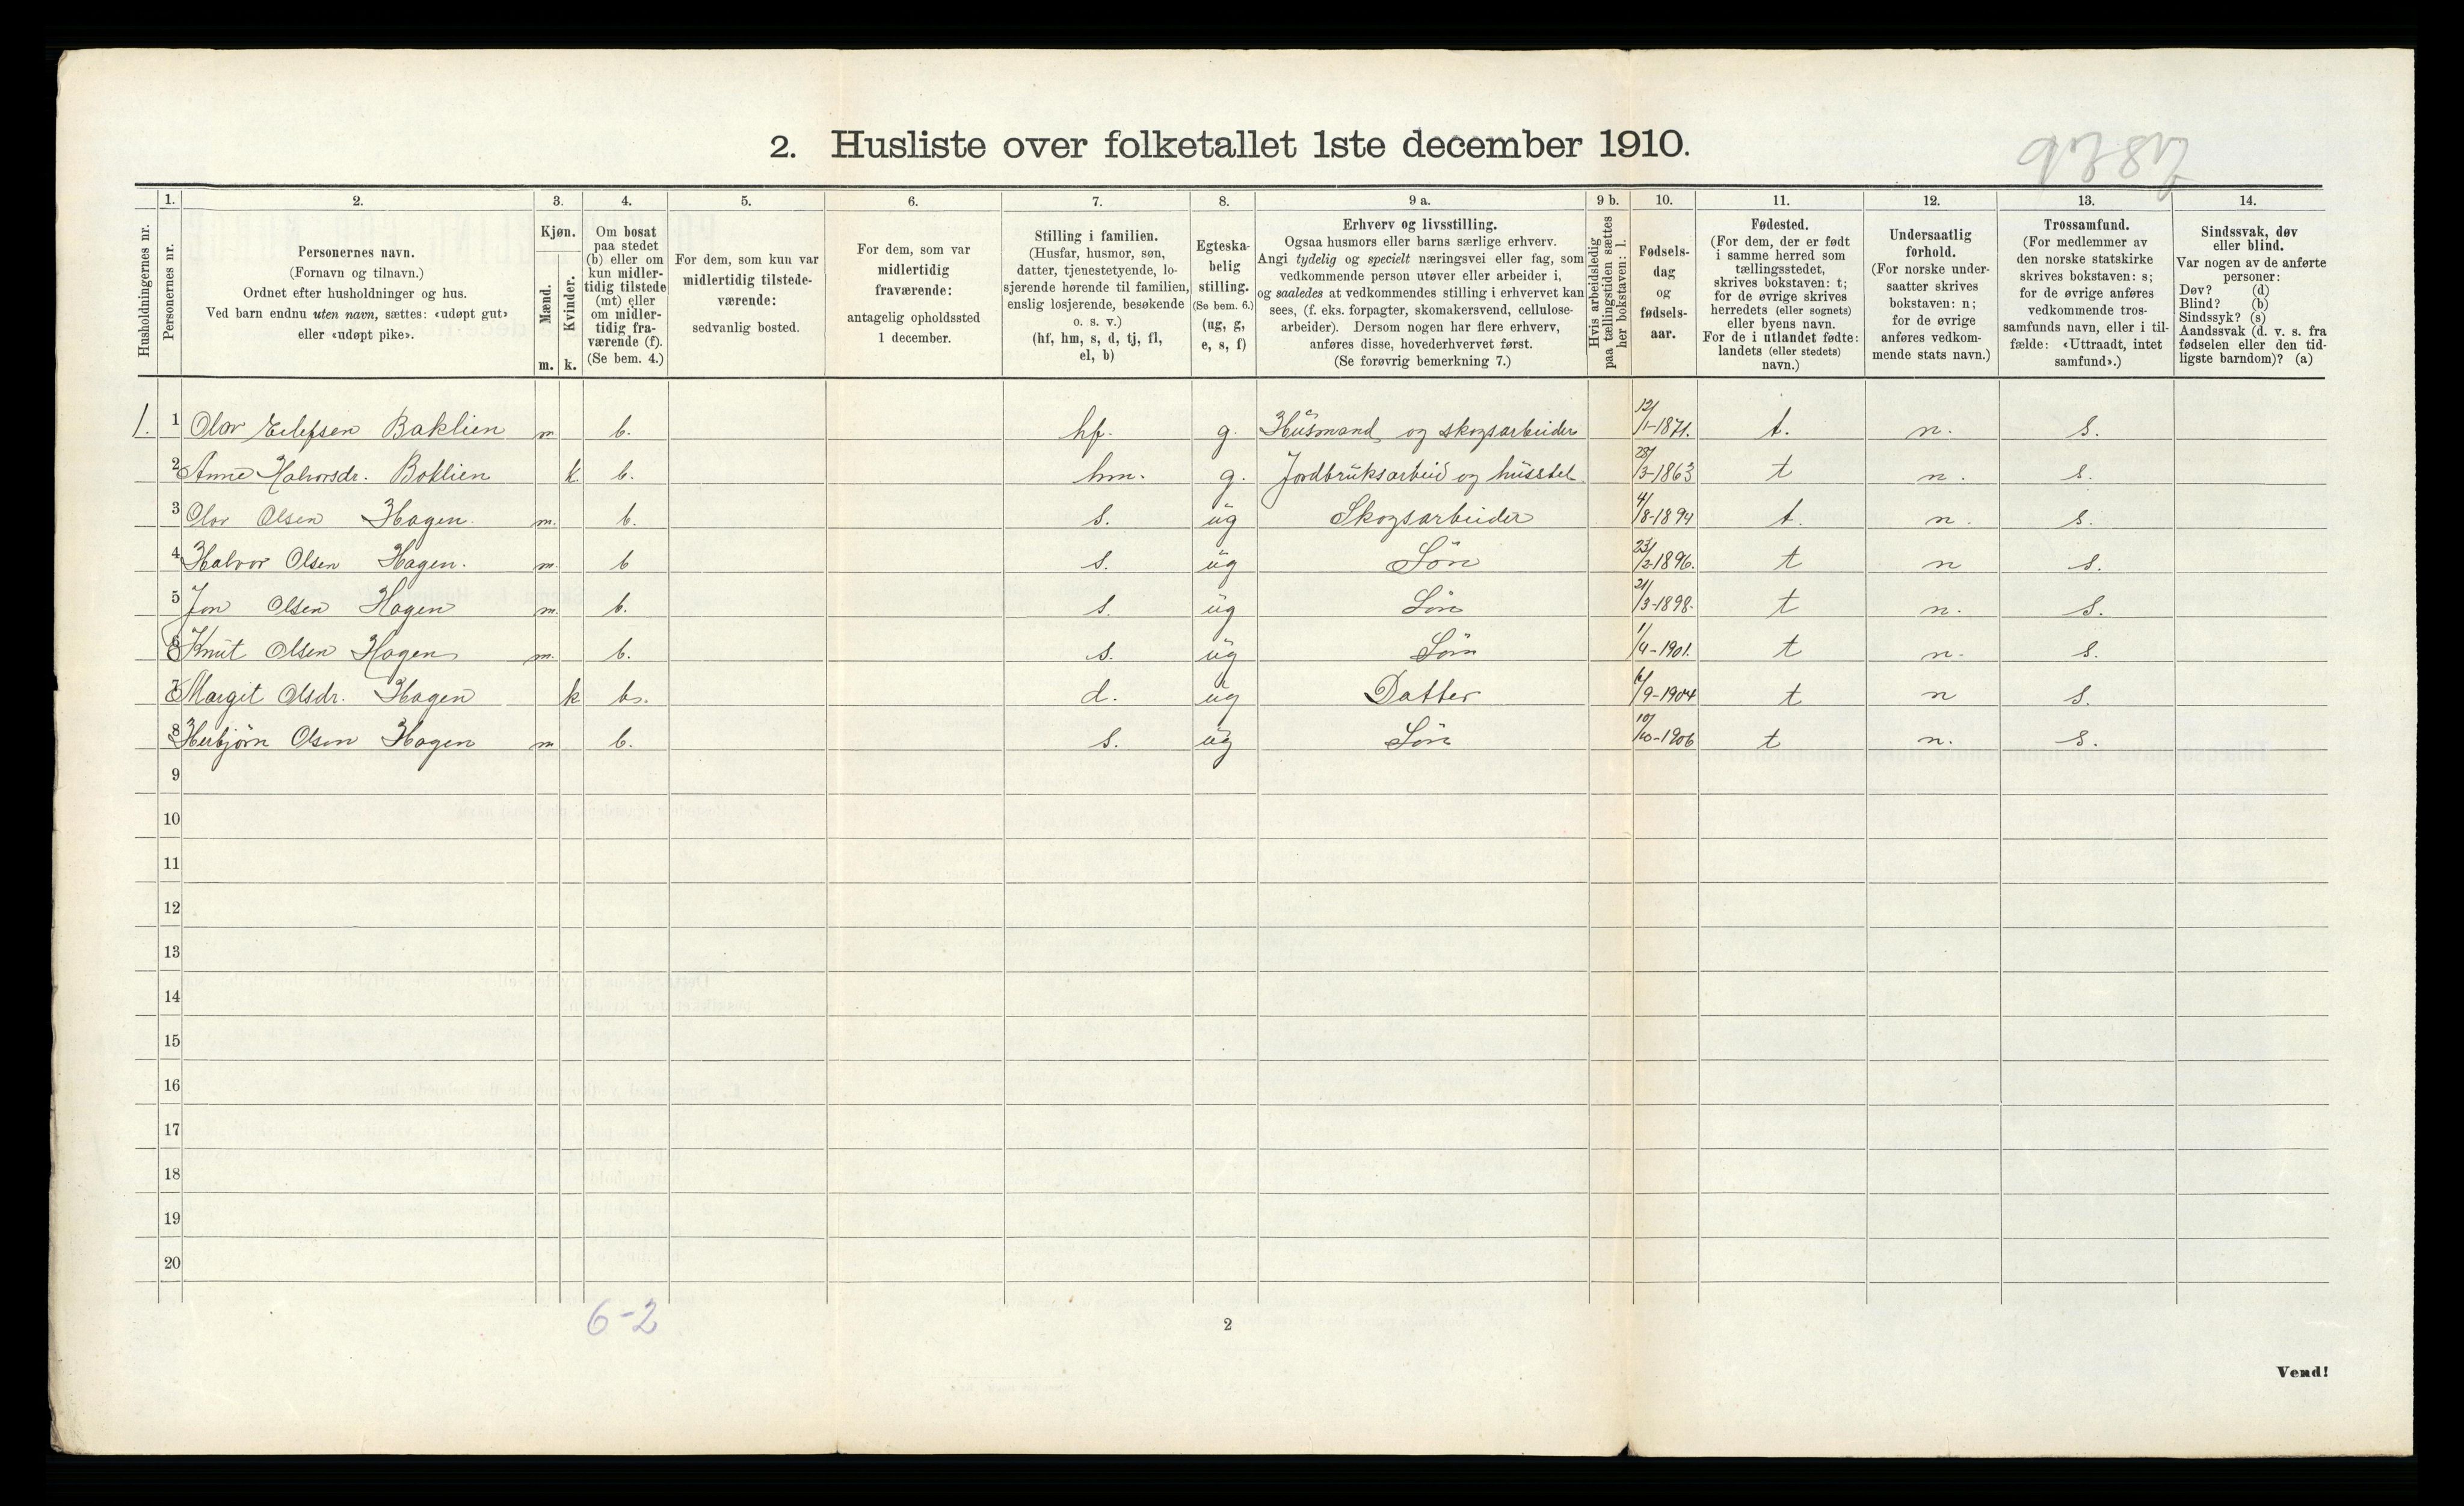 2. Husliste over folketallet 1ste december 1910.
Husholdningernes nr.
1.
Personernes nr.
2.
Personernes navn.
(Fornavn og tilnavn.)
Ordnet efter husholdninger og hus.
Ved barn endnu uten navn, sættes: «udøpt gut»
eller «udøpt pike».
3.
Kjøn.
Mænd.
Kvinder.
m. k.
4.
Om bosat
paa stedet
(b) eller om
kun midler-
tidig tilstede
(mt) eller
om midler-
tidig fra-
værende (f).
(Se bem. 4.)
5.
For dem, som kun var
midlertidig tilstede-
værende:
sedvanlig bosted.
6.
For dem, som var
midlertidig
fraværende:
antagelig opholdssted
1 december.
7.
Stilling i familien.
(Husfar, husmor, søn,
datter, tjenestetyende, lo-
sjerende hørende til familien,
enslig losjerende, besøkende
o. s. v.)
(hf, hm, s, d, tj, fl,
el, b)
8.
Egteska-
belig
stilling.
(Se bem. 6.)
(ug, g,
e, s, f)
9 a.
Erhverv og livsstilling.
Ogsaa husmors eller barns særlige erhverv.
Angi tydelig og specielt næringsvei eller fag, som
vedkommende person utøver eller arbeider i,
og saaledes at vedkommendes stilling i erhvervet kan
sees, (f. eks. forpagter, skomakersvend, cellulose-
arbeider). Dersom nogen har flere erhverv,
anføres disse, hovederhvervet først.
(Se forøvrig bemerkning 7.)
9 b.
Hvis arbeidsledig
paa tællingstiden sættes
her bokstaven: l.
10.
Fødsels-
dag
og
fødsels-
aar.
11.
Fødested.
(For dem, der er født
i samme herred som
tællingsstedet,
skrives bokstaven: t;
for de øvrige skrives
herredets (eller sognets)
eller byens navn.
For de i utlandet fødte:
landets (eller stedets)
navn.)
12.
Undersaatlig
forhold.
(For norske under-
saatter skrives
bokstaven: n;
for de øvrige
anføres vedkom-
mende stats navn.)
13.
Trossamfund.
(For medlemmer av
den norske statskirke
skrives bokstaven: s;
for de øvrige anføres
vedkommende tros-
samfunds navn, eller i til-
fælde: «Uttraadt, intet
samfund».)
14.
Sindssvak, døv
eller blind.
Var nogen av de anførte
personer:
Døv? (d)
Blind? (b)
Sindssyk? (s)
Aandssvak (d. v. s. fra
fødselen eller den tid-
ligste barndom)? (a)
1. 1 Olav Eilefsen Baklien m b. hf. g. Husmand og skogsarbeider 12/1-1871. t. n. s.
2 Anne Halvorsdr. Baklien k. b. hm. g. Jordbruksarbeid og husstel 28/3-1863 t n. s.
3 Olav Olsen Hagen. m. b. s. ug Skogsarbeider 4/8-1894 t. n. s.
4 Halvor Olsen Hagen. m. b s. ug Søn 23/2-1896. t n s.
5 Jon Olsen Hagen m. b. s. ug Søn 21/3-1898. t n. s.
6 Knut Olsen Hagen m. b. s. ug Søn 1/4-1901. t n. s.
7 Margit Olsdr. Hagen k b. d. ug Datter 6/9-1904 t n s.
8 Herbjørn Olsen Hagen m b. s. ug Søn 10/10-1906 t n. s.
9
10
11
12
13
14
15
16
17
18
19
20
6-2
2
Vend!